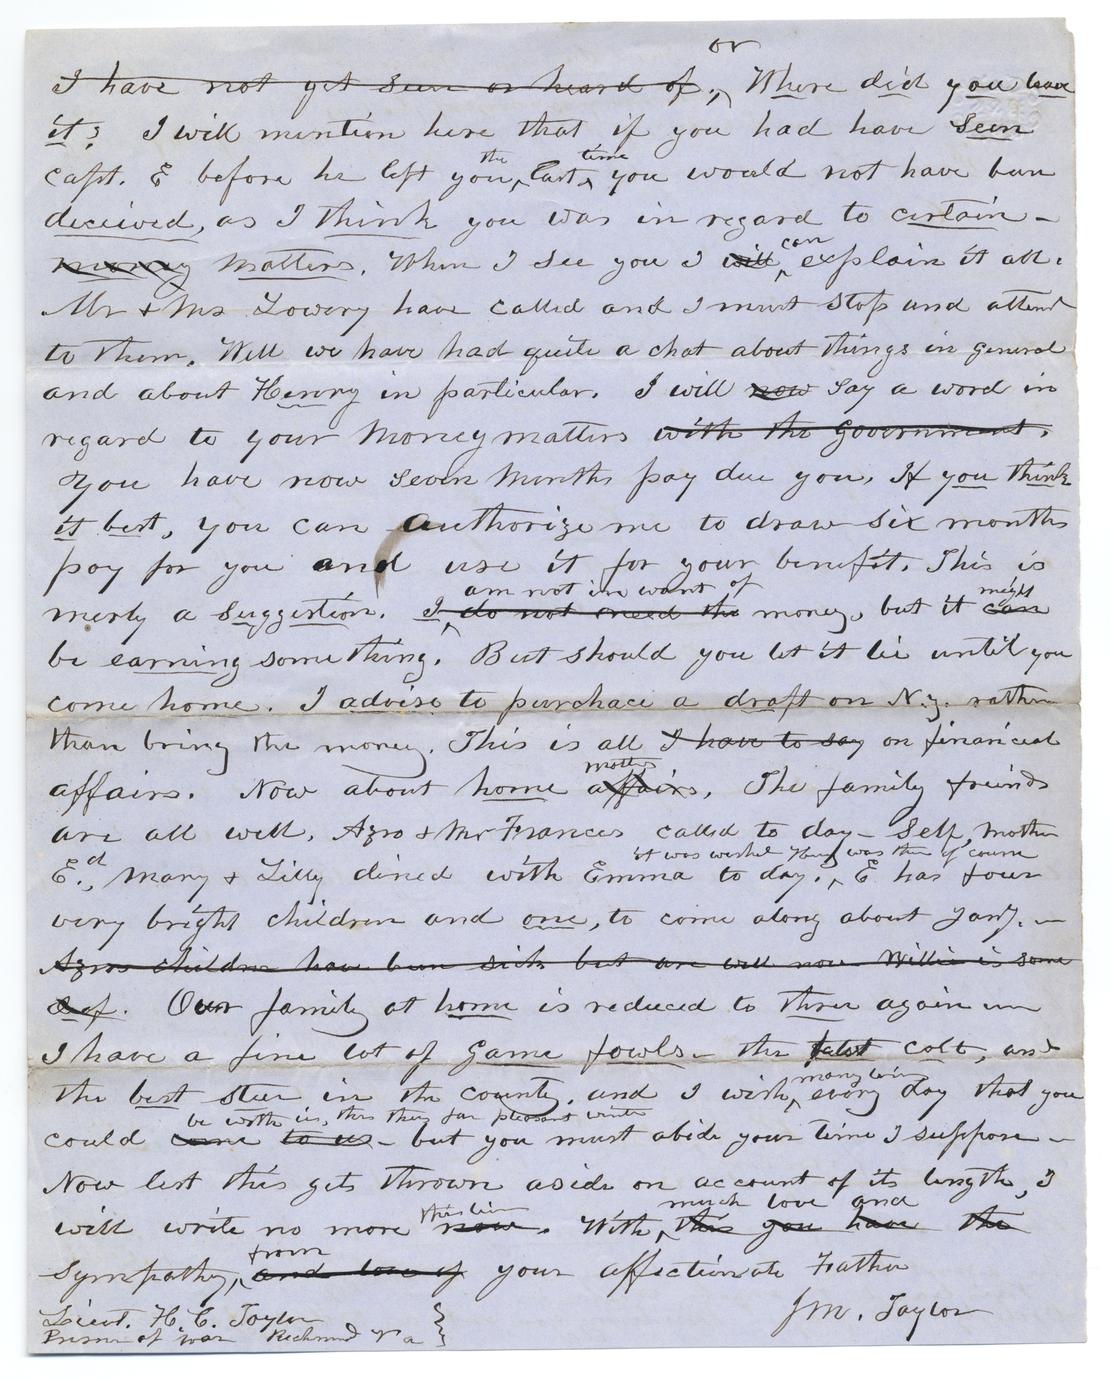 or
I have not yet seen or heard of, Where did you leave
it? I will mention here that if you had have seen
Capt. E before he left you, the last time you would not have been
deceived, as I think you was in regard to certain -
money matters. When I see you I will can explain it all.
Mr & Mrs Lowery have called and I must stop and attend
to them. Well we have had quite a chat about things in general
and about Henry in particular. I will now say a word in
regard to your money matters with the Government.
You have now seven months pay due you. If you think
it best, you can authorize me to draw six months
pay for you and use it for your benefit. This is
merly a suggestion. I am not in want of do not need the money, but it can might
be earning something. But should you let it lie until you
come home. I advise to purchace a draft on N.Y. rather
than bring the money. This is all I have to say on financial
affairs. Now about home affairs matters. The family friends
are all well. Azro & Mr Frances called to day - Self, Mother
Ed., Mary & Lilly dined with Emma to day. it was wished Henry was there of course E has four
very bright children and one, to come along about Jany. -
Azros children have been sick but are well now Willie is some
deaf. Our family at home is reduced to three again
I have a fine lot of game fowls - the colt, and
the best steer in the county, and I wish, many times every day that you
could be with us, this thus far pleasant winter come to us - but you must abide your time I suppose -
Now lest this gets thrown aside on account of its length, I
will write no more this time now. With, much love and this you have the
Sympathy, from and love of your affectionate Father
J M. Taylor
Lieut. H. C. Taylor
Prisoner of war Richmond Va